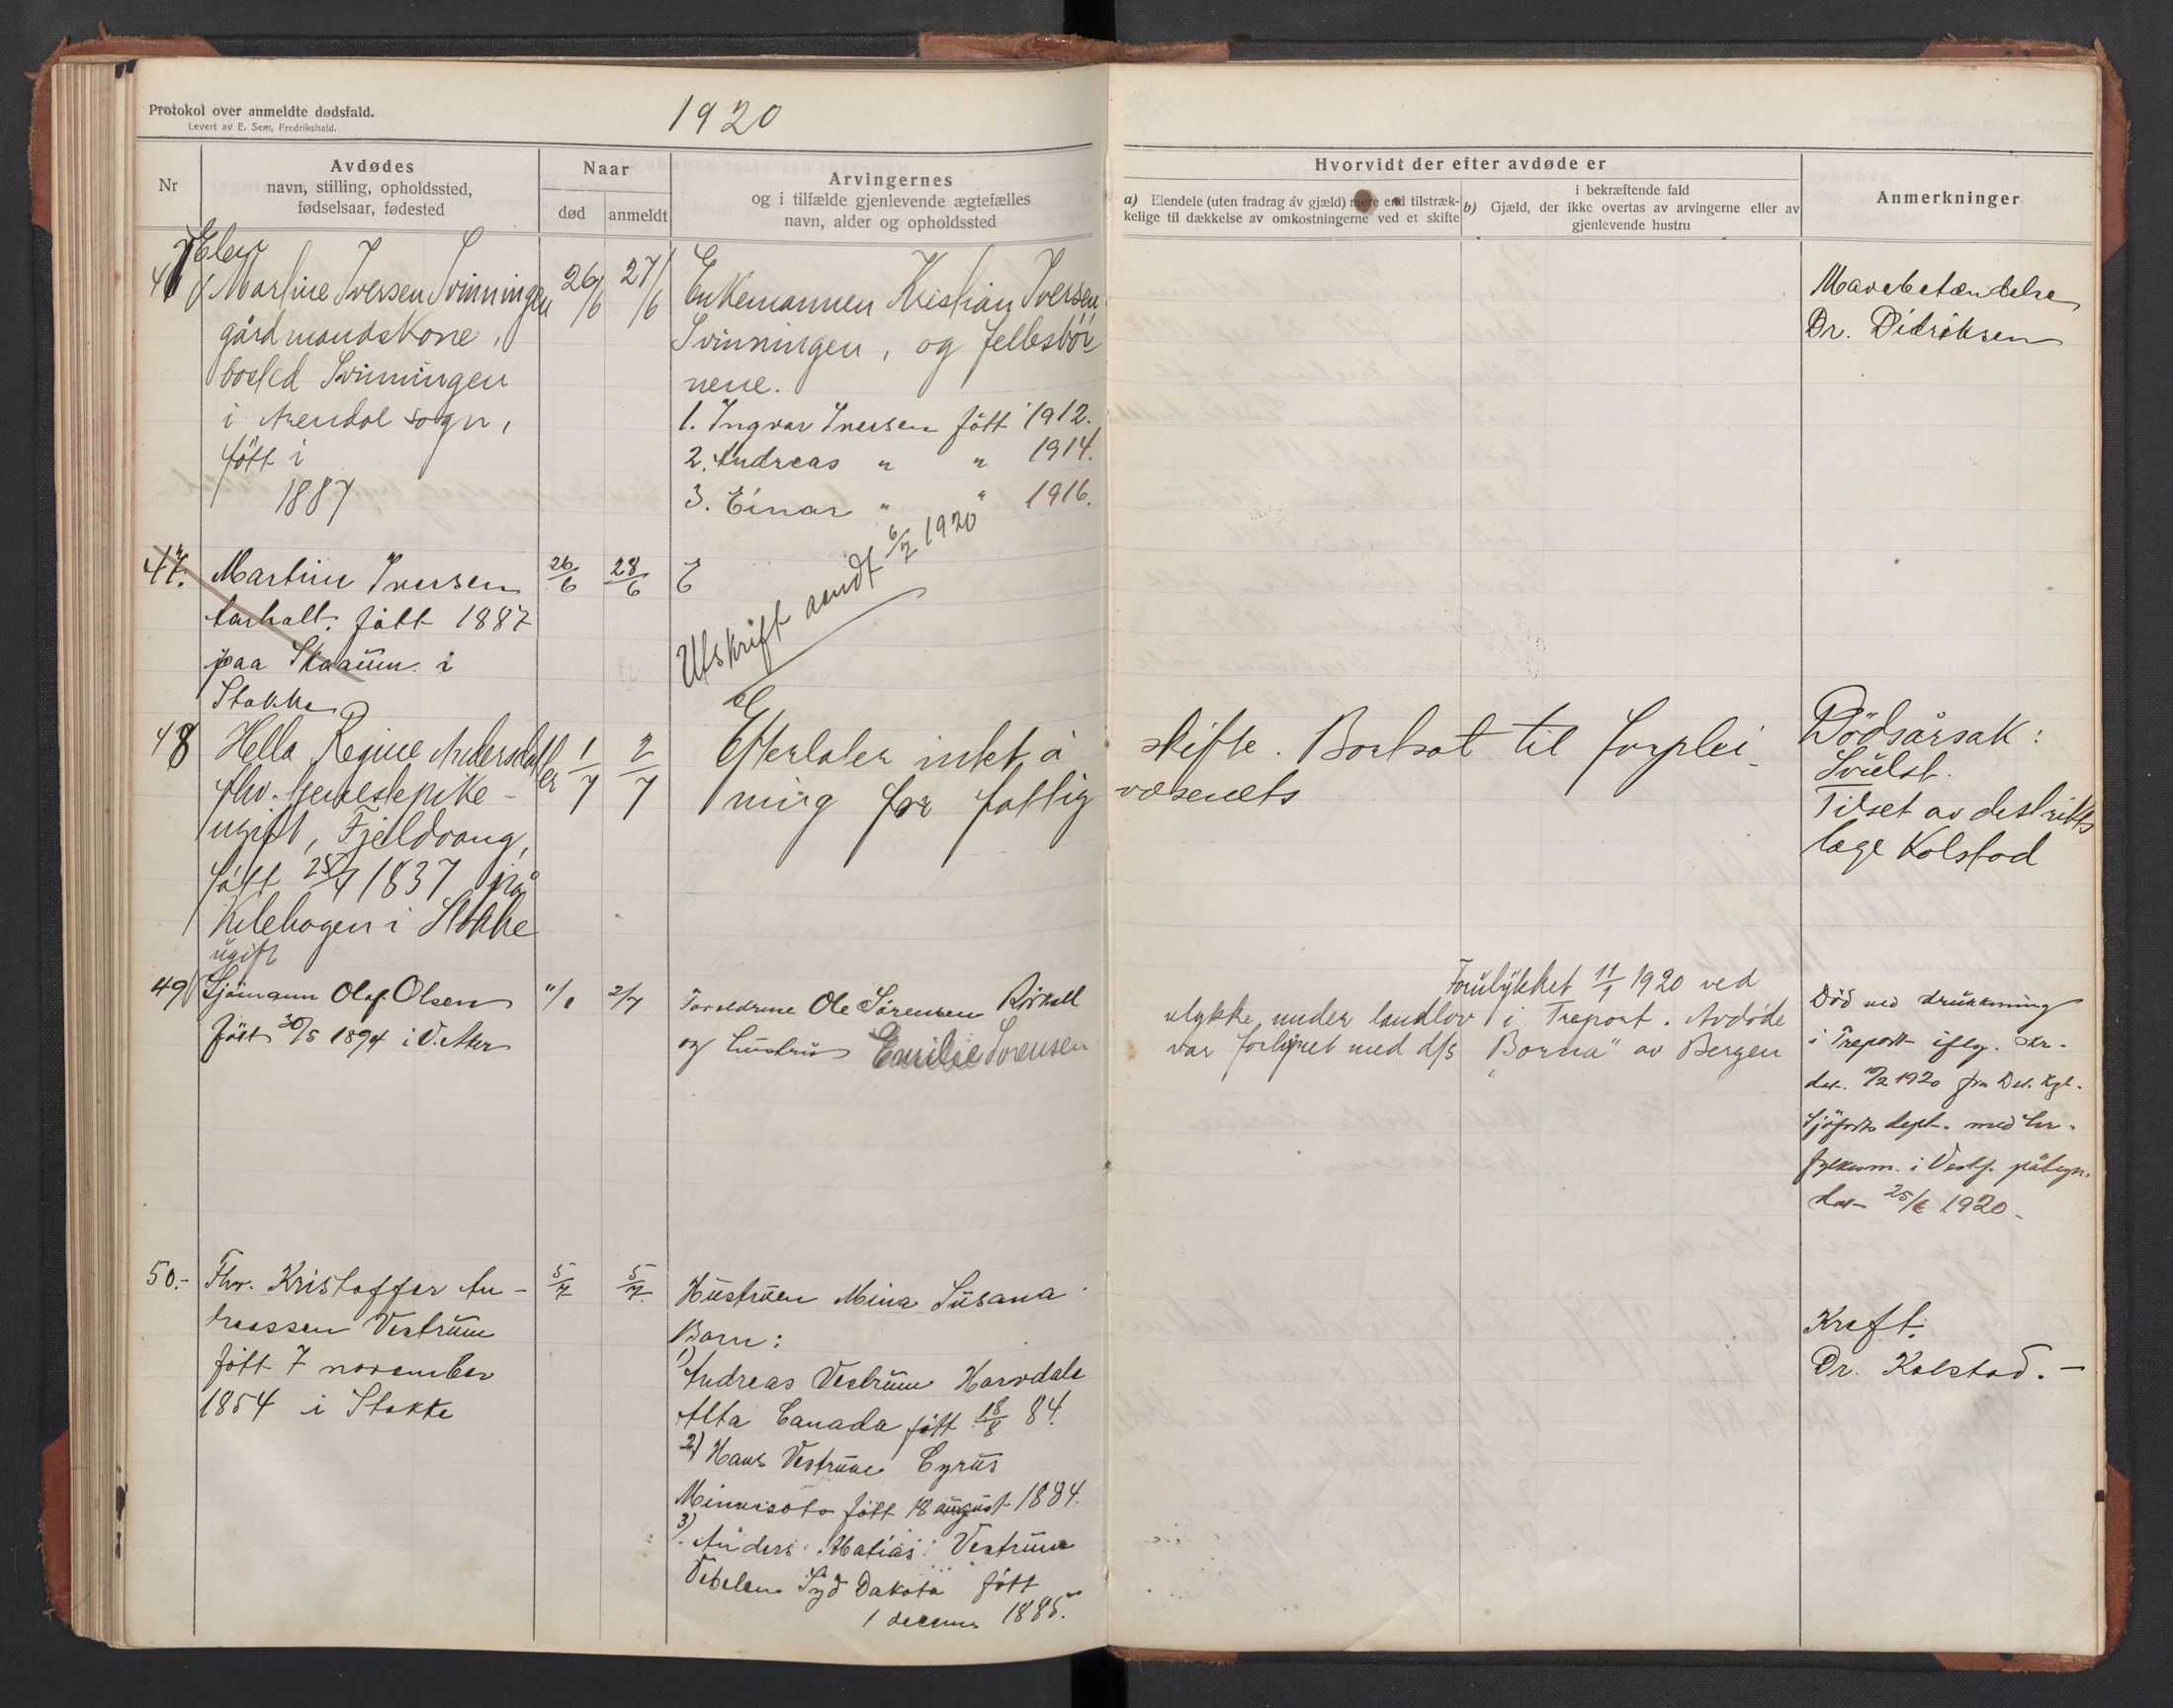 Protokol over anmeldte dødsfald.
Levert av E. Sem, Fredrikshald.
1920
Nr
Avdødes
navn, stilling, opholdssted,
fødselsaar, fødested
Naar
død
anmeldt
Arvingernes
og i tilfælde gjenlevende ægtefælles
navn, alder og opholdssted
Hvorvidt der efter avdøde er
a) Eiendele (uten fradrag av gjæld) mere end tilstræk-
kelige til dækkelse av omkostningerne ved et skifte
i bekræftende fald
b) Gjæld, der ikke overtas av arvingerne eller av
gjenlevende hustru
Anmerkninger
Martine Iversen Svinningen
gårdmandskone,
bosted Svinningen
i Arendal sogn,
født i
1887
26/6
27/6
Enkemannen Kristian Iversen
Svinningen, og fellesbør
nene.
1. Ingvar Iversen født 1912.
2. Andreas " " 1914.
3. Einar " " 1916.
Mavebetændelse
Dr. Didriksen
47.
Martine Iversen
født 1887
paa i
Stokke
26/6
28/6
E
Utskrift sendt 6/7 1920
48
Hella Regine Andersdatter
fhv. tjenestepike
ugift, Fjeldvang,
født 25/4 1837 på
Kilehagen i Stokke
1/7
2/7
Efterlater intet å skifte. Bortsat til forplei
ning for fattig væsenets
Dödsårsak:
Svulst.
Tilset av distrikts
læge Kolstad
ugift
49
Sjömann Olaf Olsen
født 30/5 1894 i V. Aker
11/1
2/7
Foreldrene Ole Sørensen
og hustru Emilie Sorensen
Forulykket 11/1 1920 ved
ulykke under landlov i Treport. Avdøde
var forhyret med d/s "Borna" av Bergen
Död ved drukning
i Treport ifлg. skr.
1920 fra Det. Kgl.
Sjöfarts dept. med hr.
fylkesm. i Vestf. påtegn.
25/6 1920
50.-
Fhv. Kristoffer An-
dreassen Vestrum
født 7 november
1854 i Stokke
5/7
5/7
Hustruen Mina Susana
Barn:
1) Andreas Vestrum
Alta Canada født 18/8 84.
2) Hans Vestrum Cyrus
Minnisota født 18 august 1884.
3). Anders Matias Vestrum
Vebelen Syd Dakota født
1 decem 1885.
Kreft.
Dr. Kolstad. -